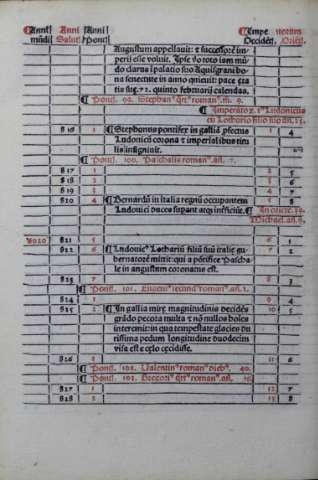 Anni mūdi Anni Salut' Anni Pont. Impe. Occidēt. ratorum Oriēt.
Augustum appellauit: & successorē im
perii esse voluit. Ipse vo toto iam mū
do clarus i palatio suo Aquisgrani bo
na senectute in anno quieuit: pace eta
tis sue. 72. quinto februarii calendas.
Pont. 99. Stephan' roman'
Imperato Ludouicus
cū Lothario filio
816 1 Stephanus pontifex in galliā pfectus 1 4
Ludouicū corona & imperialibus titu
lis insigniuit.
Pont. 100. Paschalis roman' 7.
817 1 2 5
818 2 3 6
819 3 4 7
820 4 Bernardū in italia regnū occupantem 5 8
Ludouici duces supant atq; inficiūt. In oriēte
Michael
6020 821 5 6 1
822 6 Ludouic' Lothariū filiū suū italie gu 7 2
bernatorē mittit: qui a pōtifice Pascha
le in augustum coronatus est.
823 7 8 3
Pont. 101. Eugeni' secund' roman'
824 1 9 4
825 2 In gallia mire magnitudinis decidēs 10 5
grādo pecora multa & nō nullos hoies
interemit: in qua tempestate glacies du
rissima pedum longitudine duodecim
visa est e celo cecidisse.
826 3 11 6
Pont. 102. Valentin' roman' dieb' 40.
Pont. 103. Gregori' roman' 16
827 1 12 7
828 2 13 8